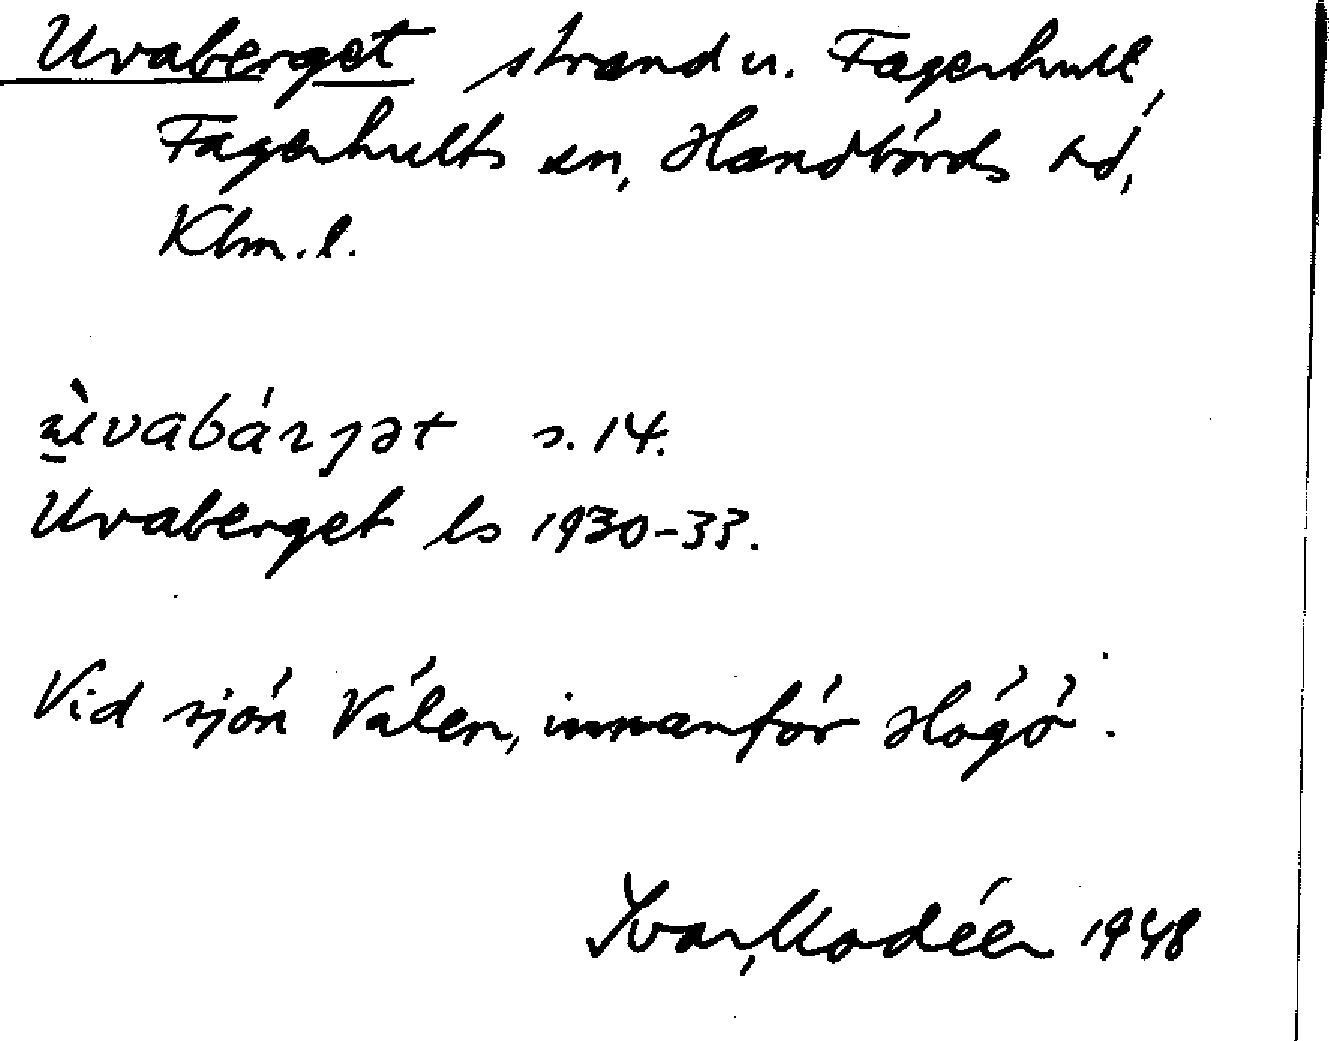 Uvaberget strand u. Fagerhult,
Fagerhults sn, Handbörds hd,
Klm. l.
ùvabárjət s. 14.
Uvaberget ls 1930-33.
Vid sjön Välen, innanför Högö.
Ivar Modéer 1948